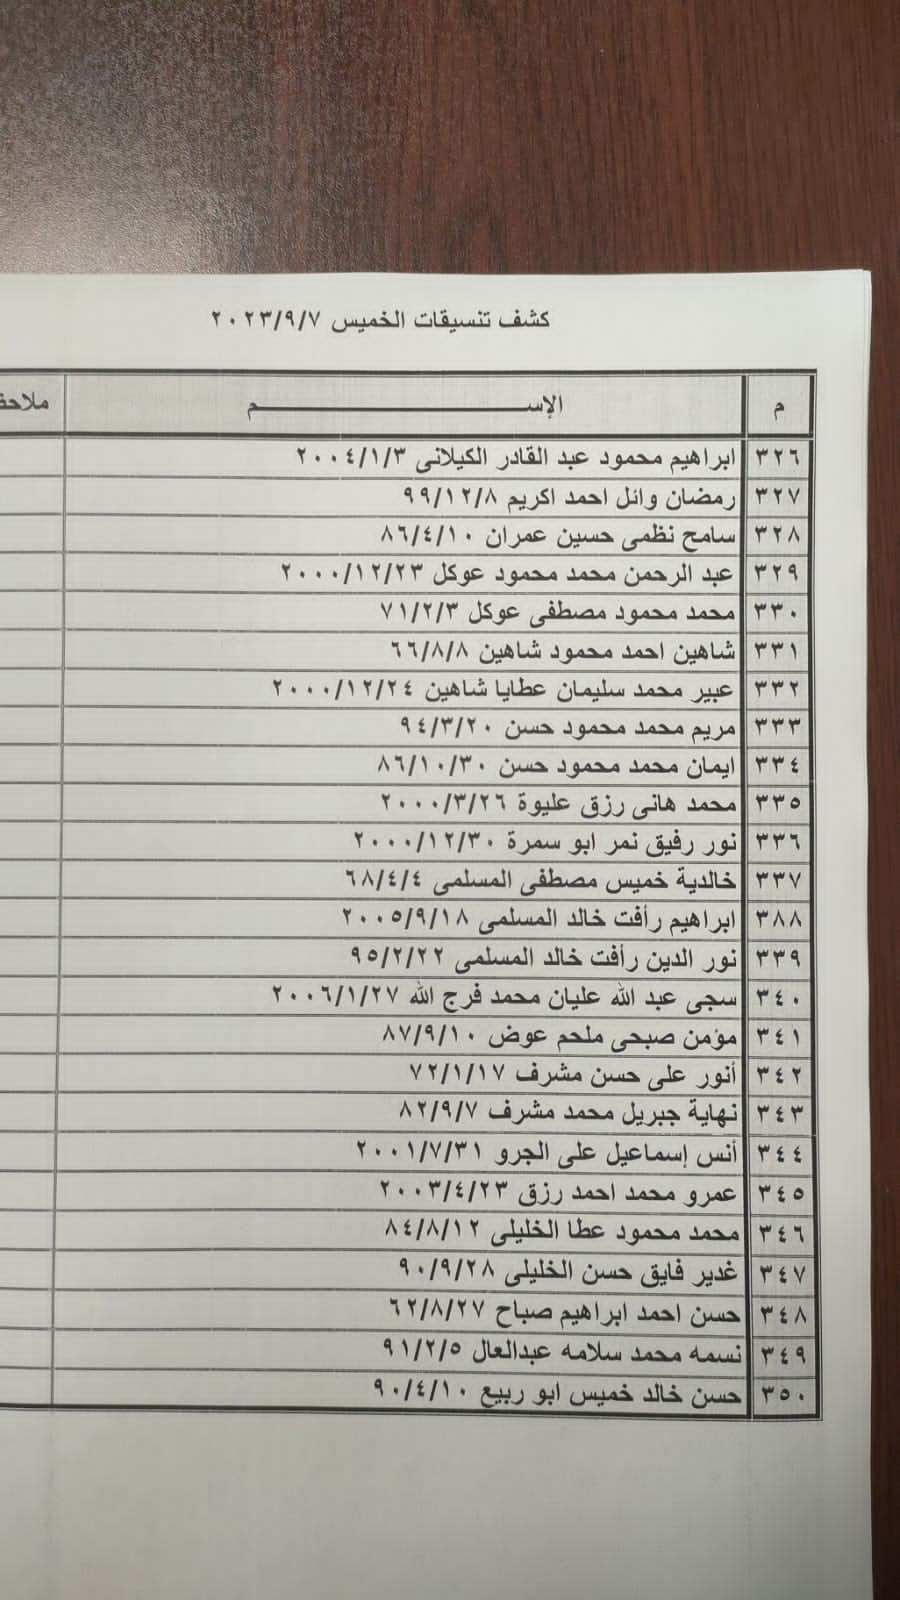 كشف تنسيقات الخميس ٢٠٢٣/٩/٧
م الإســـــــــم ملاحظ
٣٢٦ ابراهيم محمود عبد القادر الكيلانى ٢٠٠٤/١/٣
٣٢٧ رمضان وائل احمد اكريم ٩٩/١٢/٨
٣٢٨ سامح نظمى حسين عمران ٨٦/٤/١٠
٣٢٩ عبد الرحمن محمد محمود عوكل ٢٠٠٠/١٢/٢٣
٣٣٠ محمد محمود مصطفى عوكل ٧١/٢/٣
٣٣١ شاهين احمد محمود شاهين ٦٦/٨/٨
٣٣٢ عبير محمد سليمان عطايا شاهين ٢٠٠٠/١٢/٢٤
٣٣٣ مريم محمد محمود حسن ٩٤/٣/٢٠
٣٣٤ ايمان محمد محمود حسن ٨٦/١٠/٣٠
٣٣٥ محمد هانى رزق عليوة ٢٠٠٠/٣/٢٦
٣٣٦ نور رفيق نمر ابو سمرة ٢٠٠٠/١٢/٣٠
٣٣٧ خالدية خميس مصطفى المسلمى ٦٨/٤/٤
٣٨٨ ابراهيم رأفت خالد المسلمى ٢٠٠٥/٩/١٨
٣٣٩ نور الدين رأفت خالد المسلمى ٩٥/٢/٢٢
٣٤٠ سجى عبد الله عليان محمد فرج الله ٢٠٠٦/١/٢٧
٣٤١ مؤمن صبحى ملحم عوض ٨٧/٩/١٠
٣٤٢ أنور على حسن مشرف ٧٢/١/١٧
٣٤٣ نهاية جبريل محمد مشرف ٨٢/٩/٧
٣٤٤ أنس إسماعيل على الجرو ٢٠٠١/٧/٣١
٣٤٥ عمرو محمد احمد رزق ٢٠٠٣/٤/٢٣
٣٤٦ محمد محمود عطا الخليلى ٨٤/٨/١٢
٣٤٧ غدير فايق حسن الخليلى ٩٠/٩/٢٨
٣٤٨ حسن احمد ابراهيم صباح ٦٢/٨/٢٧
٣٤٩ نسمه محمد سلامه عبدالعال ٩١/٢/٥
٣٥٠ حسن خالد خميس ابو ربيع ٩٠/٤/١٠